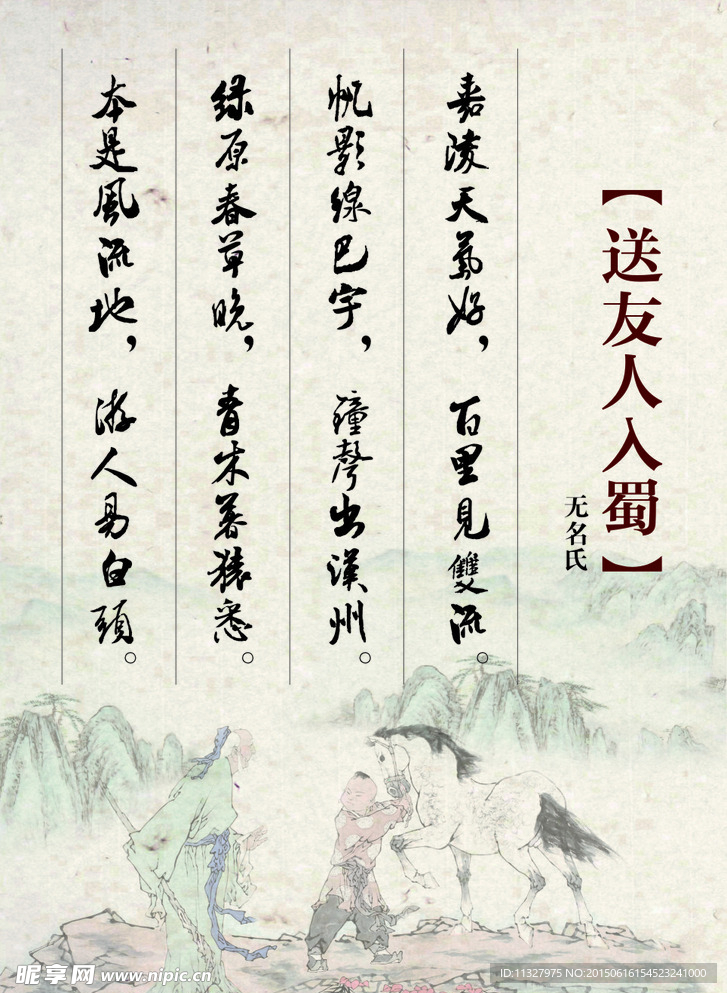 【送友人入蜀】
无名氏
嘉淩天氣好，百里見雙流。
帆影缐巴字，鐘聲出漢州。
绿原春草晚，青木暮猿悉。
本是風流地，游人易白頭。
昵享网 www.nipic.cn
ID:11327975 NO:20150616154523241000